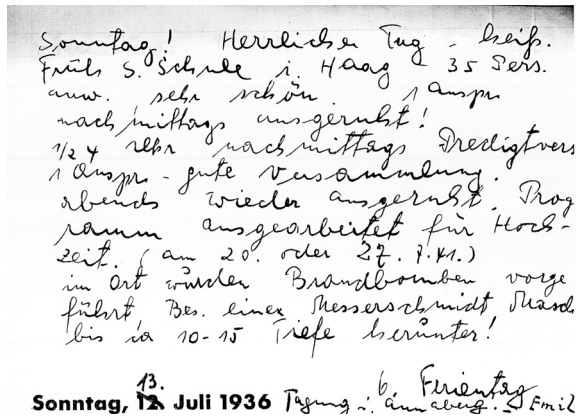 Sonntag! Herrlicher Tag - heiß.
Früh S. Schule i. Haag - 35 Pers.
anw. sehr schön. 1 Anspr
nachmittags ausgeruht!
1/2 4 Uhr nachmittags Predigtvers
1 Anspr. - gute Versammlung.
abends wieder ausgeruht. Prog
ramm ausgearbeitet für Hoch-
zeit. (am 20. oder 27. 7. 41.)
im Ort wurden Brandbomben vorge
führt. Bes. einer Messerschmidt Masch
bis ca 10-15 Tiefe herunter!
13. 6. Ferientag
Sonntag, 12. Juli 1936 Tagung i. Annaberg. - Emil